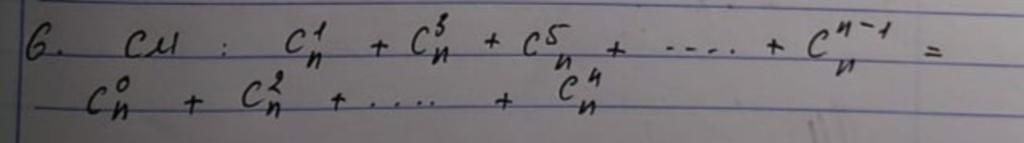 6. CM : C_n^1 + C_n^3 + C_n^5 + .... + C_n^{n-1} =
C_n^0 + C_n^2 + .... + C_n^4